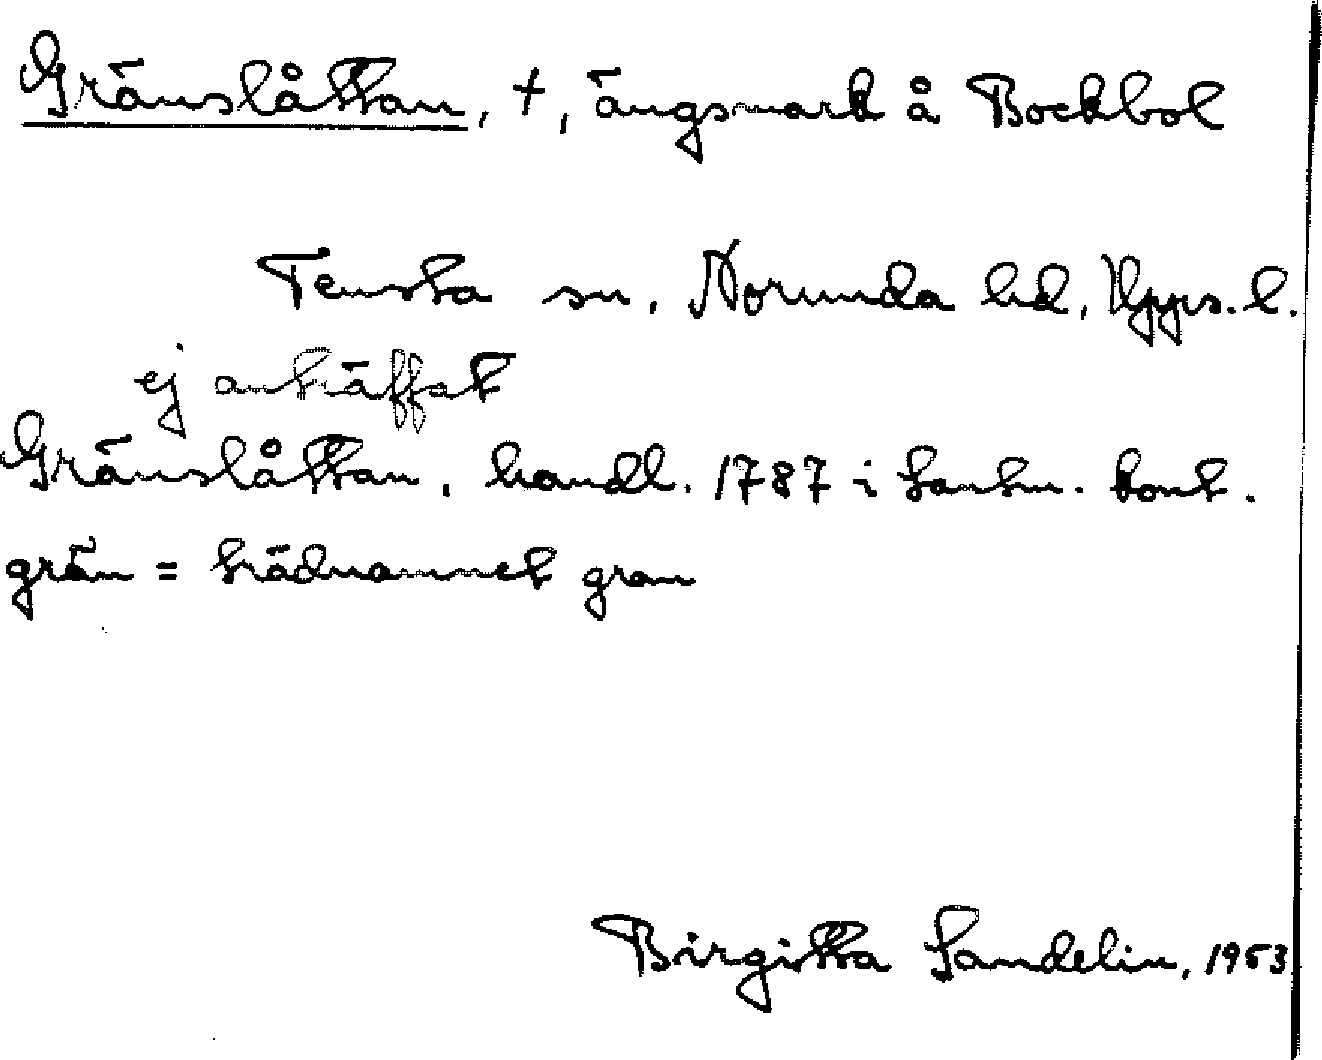 Gränslåttan, +, ängsmark å Bockbol
Tensta sn, Norunda hd, Upps. l.
ej anträffat
Gränslåttan, handl. 1787 i lantm. kont.
grän = trädnamnet gran
Birgitta Sandelin, 1953